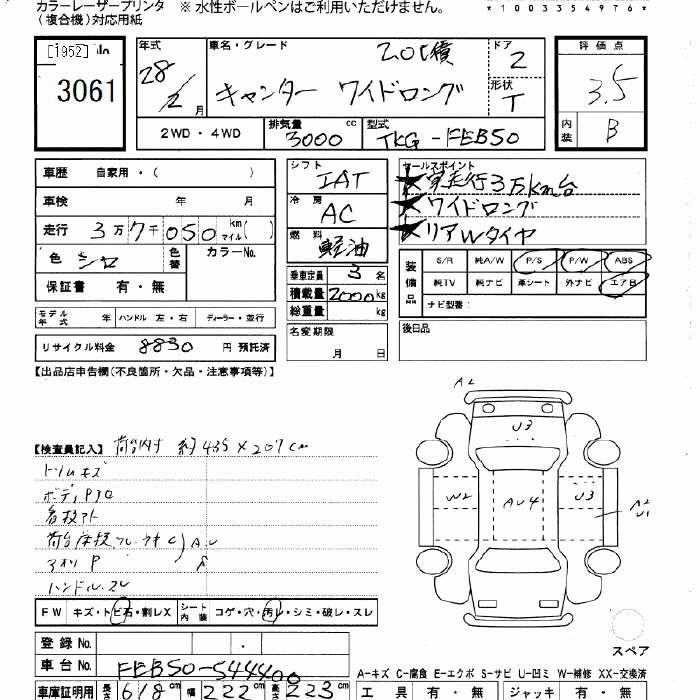 カラーレーザープリンタ ※ 水性ボールペンはご利用いただけません。
(複合機)対応用紙
*1003354976*
[1952]
3061
年式 28/2月
車名・グレード 2.0t積
キャンター ワイドロング
ドア 2
形状 T
評価点 3.5
内装 B
2WD・4WD 排気量 3000 cc 型式 TKG-FEB50
車歴 自家用・( )
車検 年 月
走行 3万7千050 km マイル( )
色 シロ 色替 カラーNo.
保証書 有・無
モデル年式 年 ハンドル 左・右 ディーラー・並行
リサイクル料金 8830 円 預託済
シフト IAT
冷房 AC
燃料 軽油
乗車定員 3 名
積載量 2000 kg
総重量 kg
名変期限 月 日
セールスポイント
★実走行3万km台
★ワイドロング
★リアWタイヤ
装備品 S/R 純A/W P/S P/W ABS
純TV 純ナビ 革シート 外ナビ エアB
ナビ型番:
後日品
【出品店申告欄(不良箇所・欠品・注意事項等)】
【検査員記入】 荷台内寸 約435×207cm
ドリムキズ
ボディPJO
看板アト
荷台床板,フレームサビC A,U
アオリ P
ハンドルスレ
A2
U3
W2
AU4
U3
A2
U1
スペア
FW キズ・ト ビ石・割レX シート内装 コゲ・穴・汚レ・シミ・破レ・スレ
登録No. .
車台No. FEB50-544400
車庫証明用 長さ 618 cm 幅 222 cm 高さ 223 cm
A-キズ C-腐食 E-エクボ S-サビ U-凹ミ W-補修 XX-交換済
工具 有・無 ジャッキ 有・無